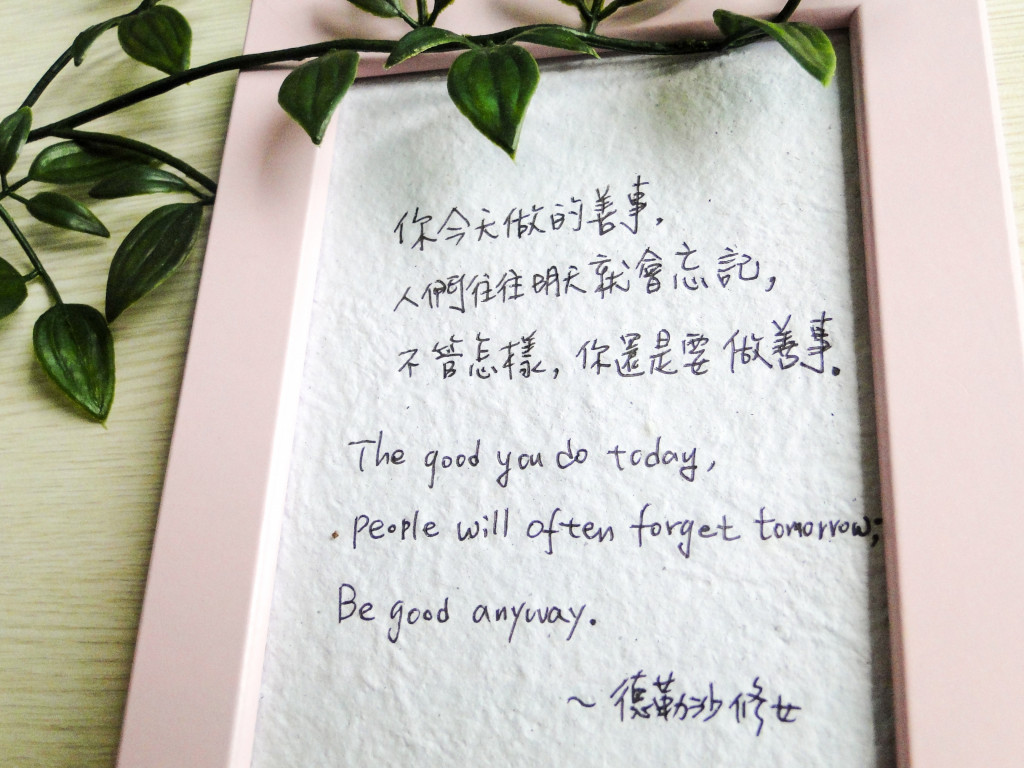 你今天做的善事,
人們往往明天就會忘記,
不管怎樣,你還是要做善事.
The good you do today,
people will often forget tomorrow;
Be good anyway.
~德勒沙修女